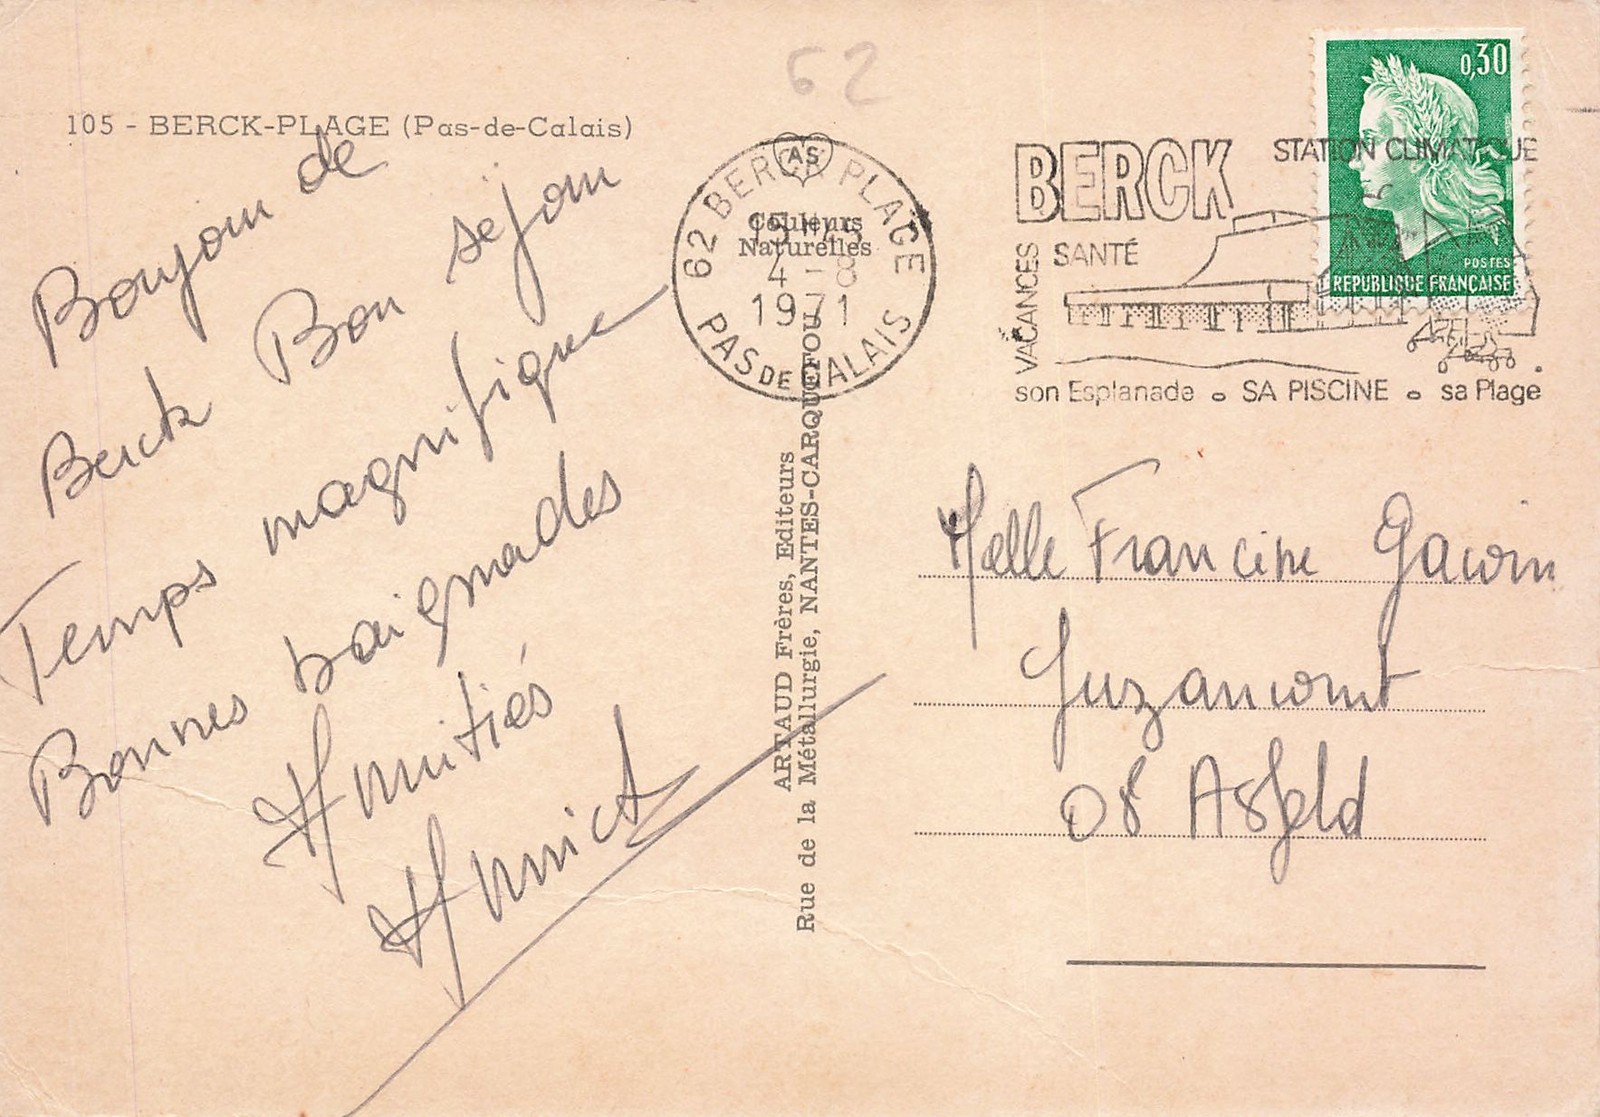 62
105 - BERCK-PLAGE (Pas-de-Calais)
Bonjour de
Berck Bon séjour
Temps magnifique
Bonnes baignades
Amitiés
Annick
AS
Couleurs
Naturelles
62 BERCK PLAGE
15H45
4 - 8
1971
PAS DE CALAIS
ARTAUD Frères, Editeurs
Rue de la Métallurgie, NANTES-CARQUEFOU
BERCK
STATION CLIMATIQUE
VACANCES
SANTÉ
son Esplanade o SA PISCINE o sa Plage
0,30
POSTES
REPUBLIQUE FRANÇAISE
Melle Francine
Juzancourt
08 Asfeld